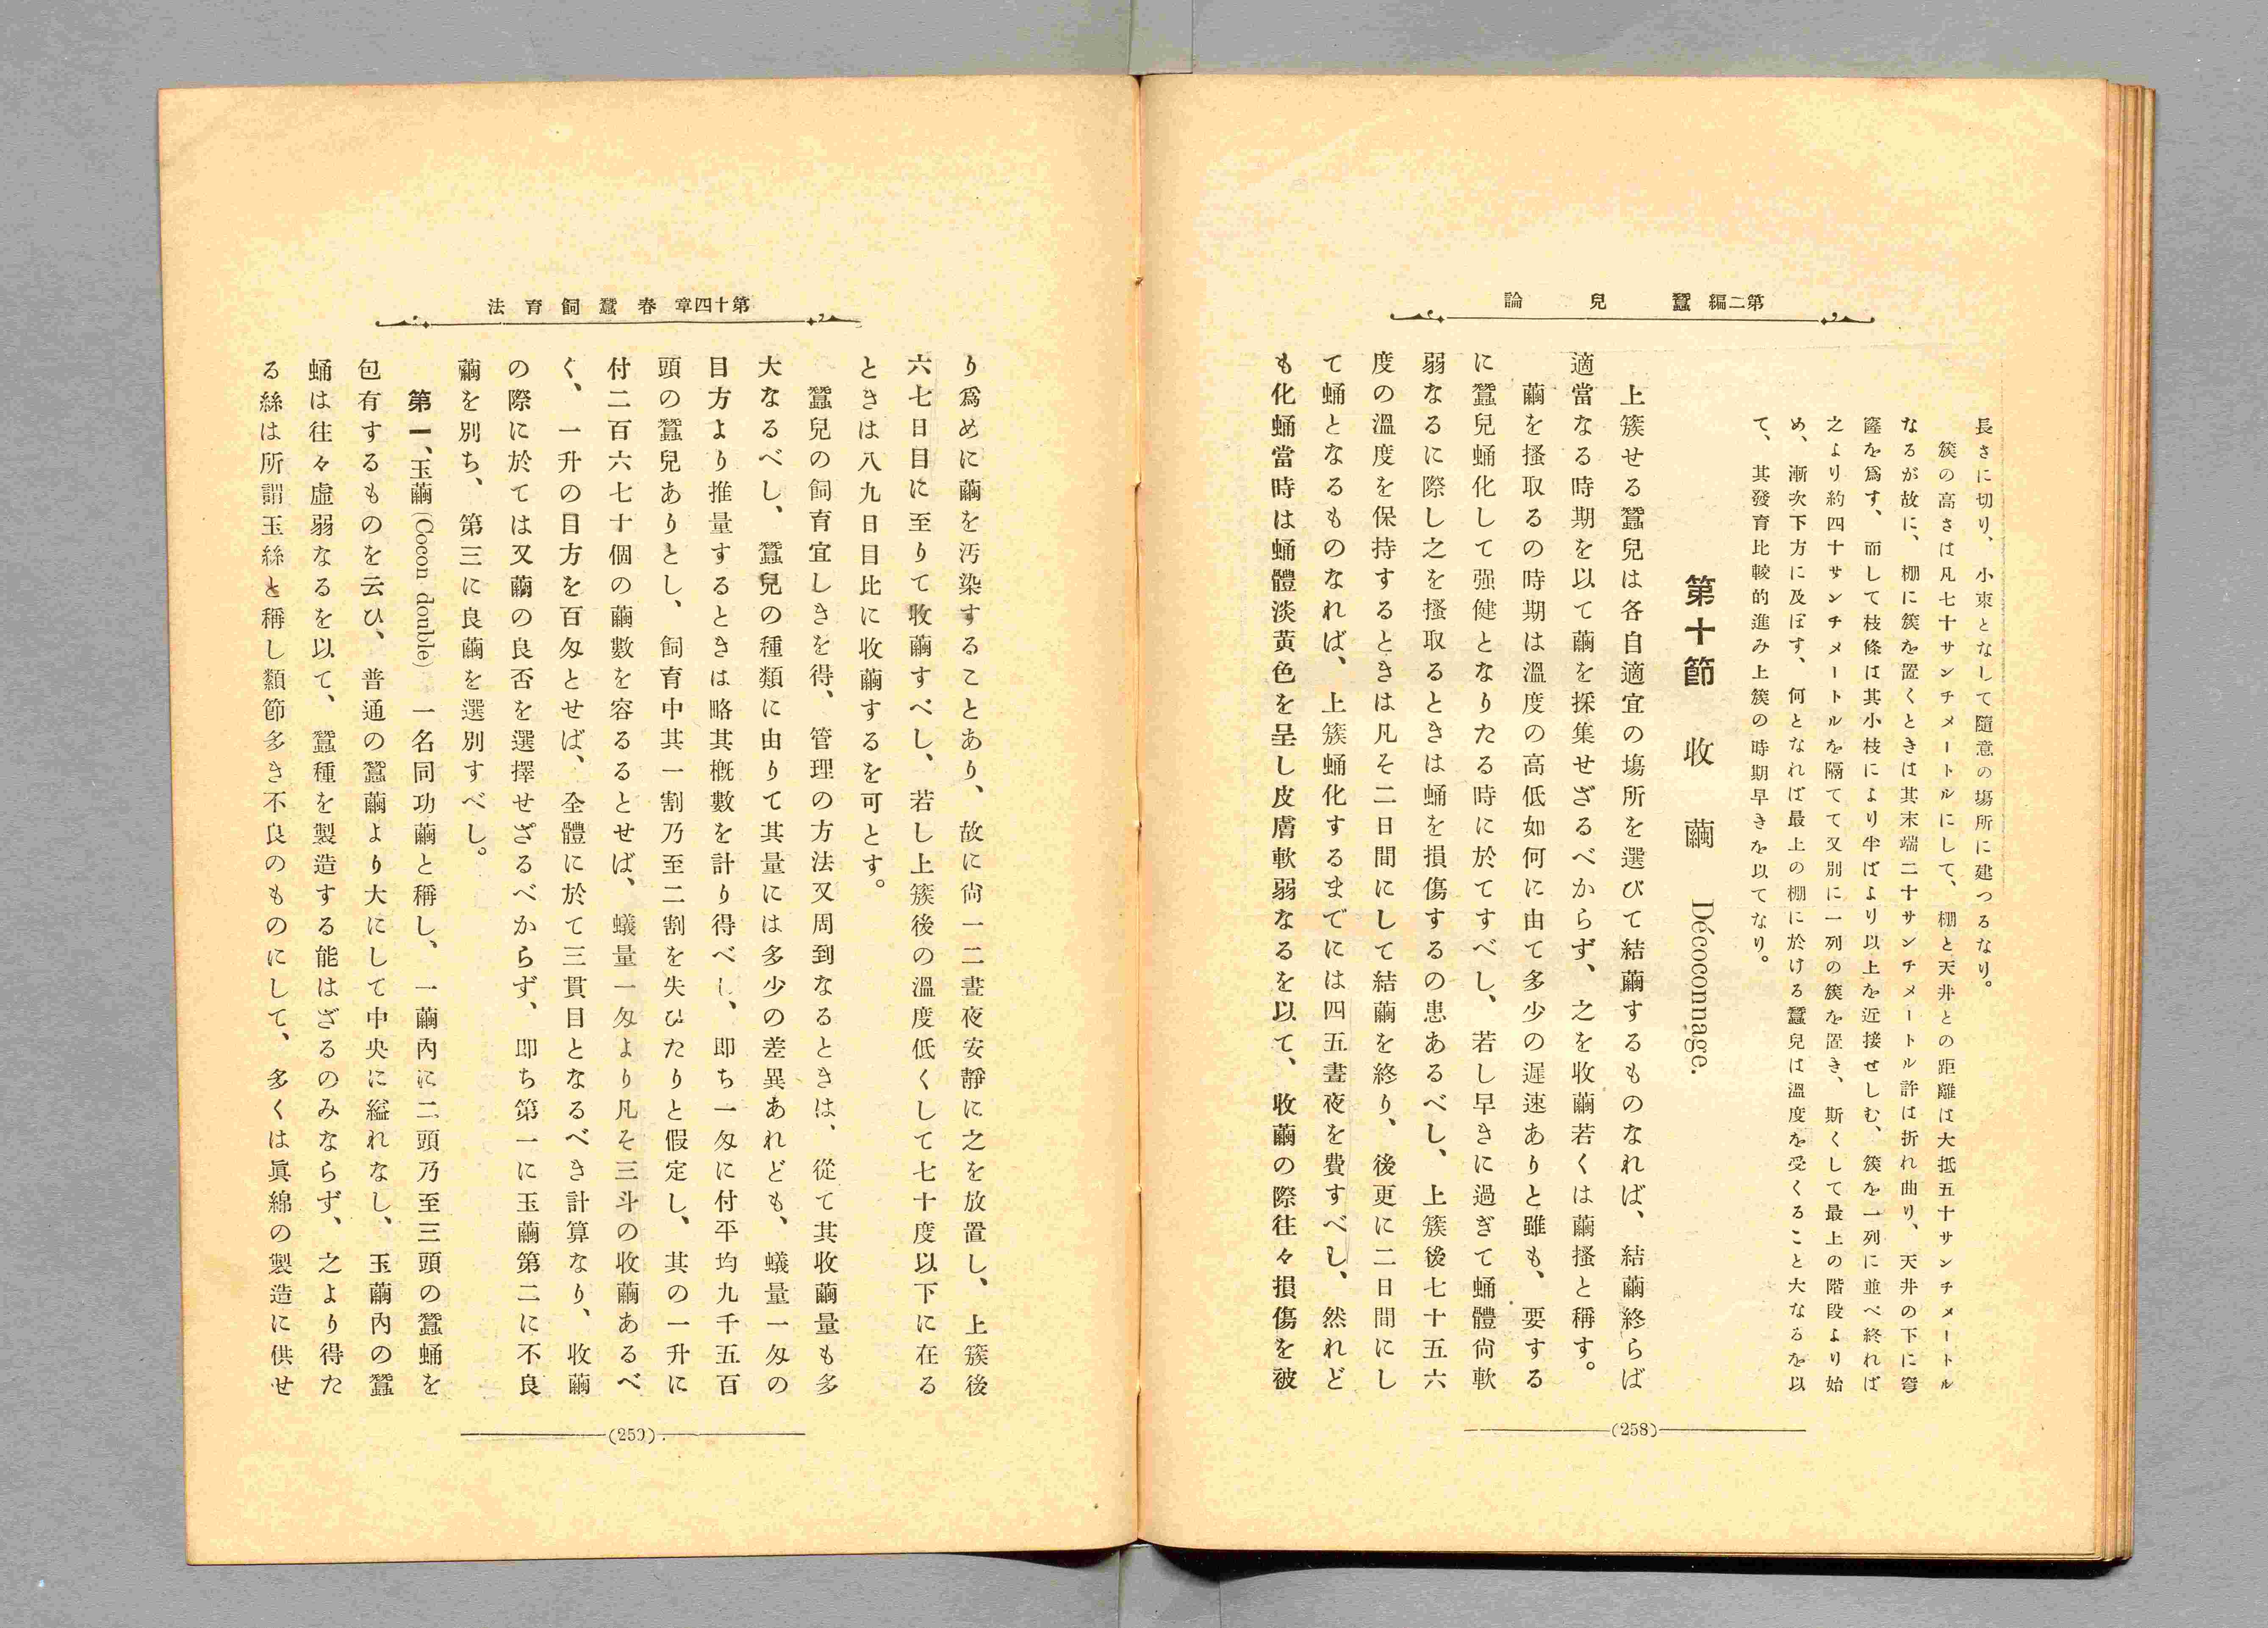 第二編 蠶兒論
長さに切り、小束となして隨意の塲所に建つるなり。
簇の高さは凡七十サンチメートルにして、棚と天井との距離は大抵五十サンチメートル
なるが故に、棚に簇を置くときは其末端二十サンチメートル許は折れ曲り、天井の下に穹
窿を爲す、而して枝條は其小枝により半ばより以上を近接せしむ、簇を一列に並べ終れば
之より約四十サンチメートルを隔てて又別に一列の簇を置き、斯くして最上の階段より始
め、漸次下方に及ぼす、何となれば最上の棚に於ける蠶兒は溫度を受くること大なるを以
て、其發育比較的進み上簇の時期早きを以てなり。
第十節 收繭 Décoconnage.
上簇せる蠶兒は各自適宜の塲所を選びて結繭するものなれば、結繭終らば
適當なる時期を以て繭を採集せざるべからず、之を收繭若くは繭搔と稱す。
繭を搔取るの時期は溫度の高低如何に由て多少の遲速ありと雖も、要する
に蠶兒蛹化して强健となりたる時に於てすべし、若し早きに過ぎて蛹體尙軟
弱なるに際し之を搔取るときは蛹を損傷するの患あるべし、上簇後七十五六
度の溫度を保持するときは凡そ二日間にして結繭を終り、後更に二日間にし
て蛹となるものなれば、上簇蛹化するまでには四五晝夜を費すべし、然れど
も化蛹當時は蛹體淡黄色を呈し皮膚軟弱なるを以て、收繭の際往々損傷を被
(258)
第十四章 春蠶飼育法
り爲めに繭を汚染することあり、故に尙一二晝夜安靜に之を放置し、上簇後
六七日目に至りて收繭すべし、若し上簇後の溫度低くして七十度以下に在る
ときは八九日目比に收繭するを可とす。
蠶兒の飼育宜しきを得、管理の方法又周到なるときは、從て其收繭量も多
大なるべし、蠶兒の種類に由りて其量には多少の差異あれども、蟻量一匁の
目方より推量するときは略其概數を計り得べし、即ち一匁に付平均九千五百
頭の蠶兒ありとし、飼育中其一割乃至二割を失ひたりと假定し、其の一升に
付二百六七十個の繭數を容るるとせば、蟻量一匁より凡そ三斗の收繭あるべ
く、一升の目方を百匁とせば、全體に於て三貫目となるべき計算なり、收繭
の際に於ては又繭の良否を選擇せざるべからず、即ち第一に玉繭第二に不良
繭を別ち、第三に良繭を選別すべし。
第一、玉繭(Cocon donble) 一名同功繭と稱し、一繭內に二頭乃至三頭の蠶蛹を
包有するものを云ひ、普通の蠶繭より大にして中央に縊れなし、玉繭內の蠶
蛹は往々虛弱なるを以て、蠶種を製造する能はざるのみならず、之より得た
る絲は所謂玉絲と稱し纇節多き不良のものにして、多くは眞綿の製造に供せ
(259)